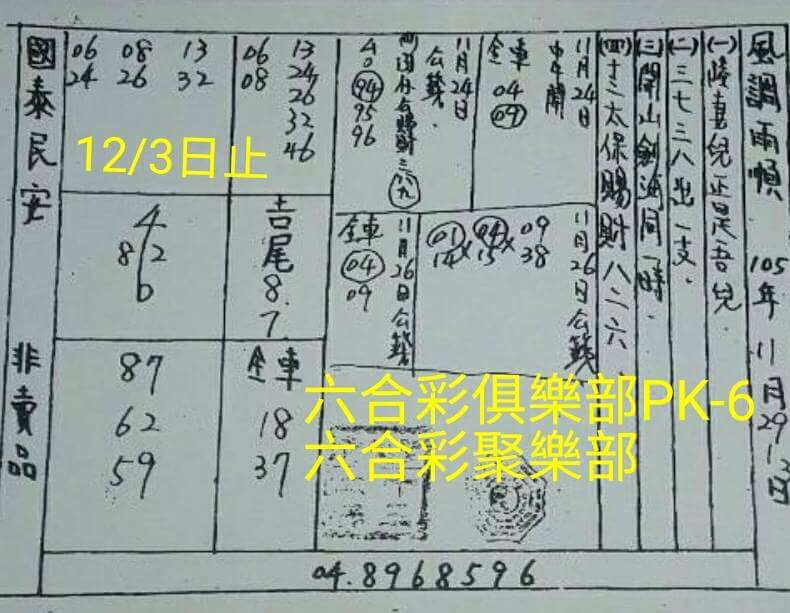 風調雨順 105年 11月29.12.3日
(一)
(二)三七三八出一支.
(三)開山劍海同一時.
(四)十三太保賜財八二六
11月24日
中午開
全車
04
09
11月24日
公籤.
40
94
95
96
11月26日公籤
09
38
04
15
01
14
11月26日公籤
全車
04
09
06 13
08 24
26
32
46
06 08 13
24 26 32
12/3日止
吉尾8.7.
4
8 2
6
全車
18
37
87
62
59
國泰民安 非賣品
六合彩俱樂部PK-6
六合彩聚樂部
04.8968596